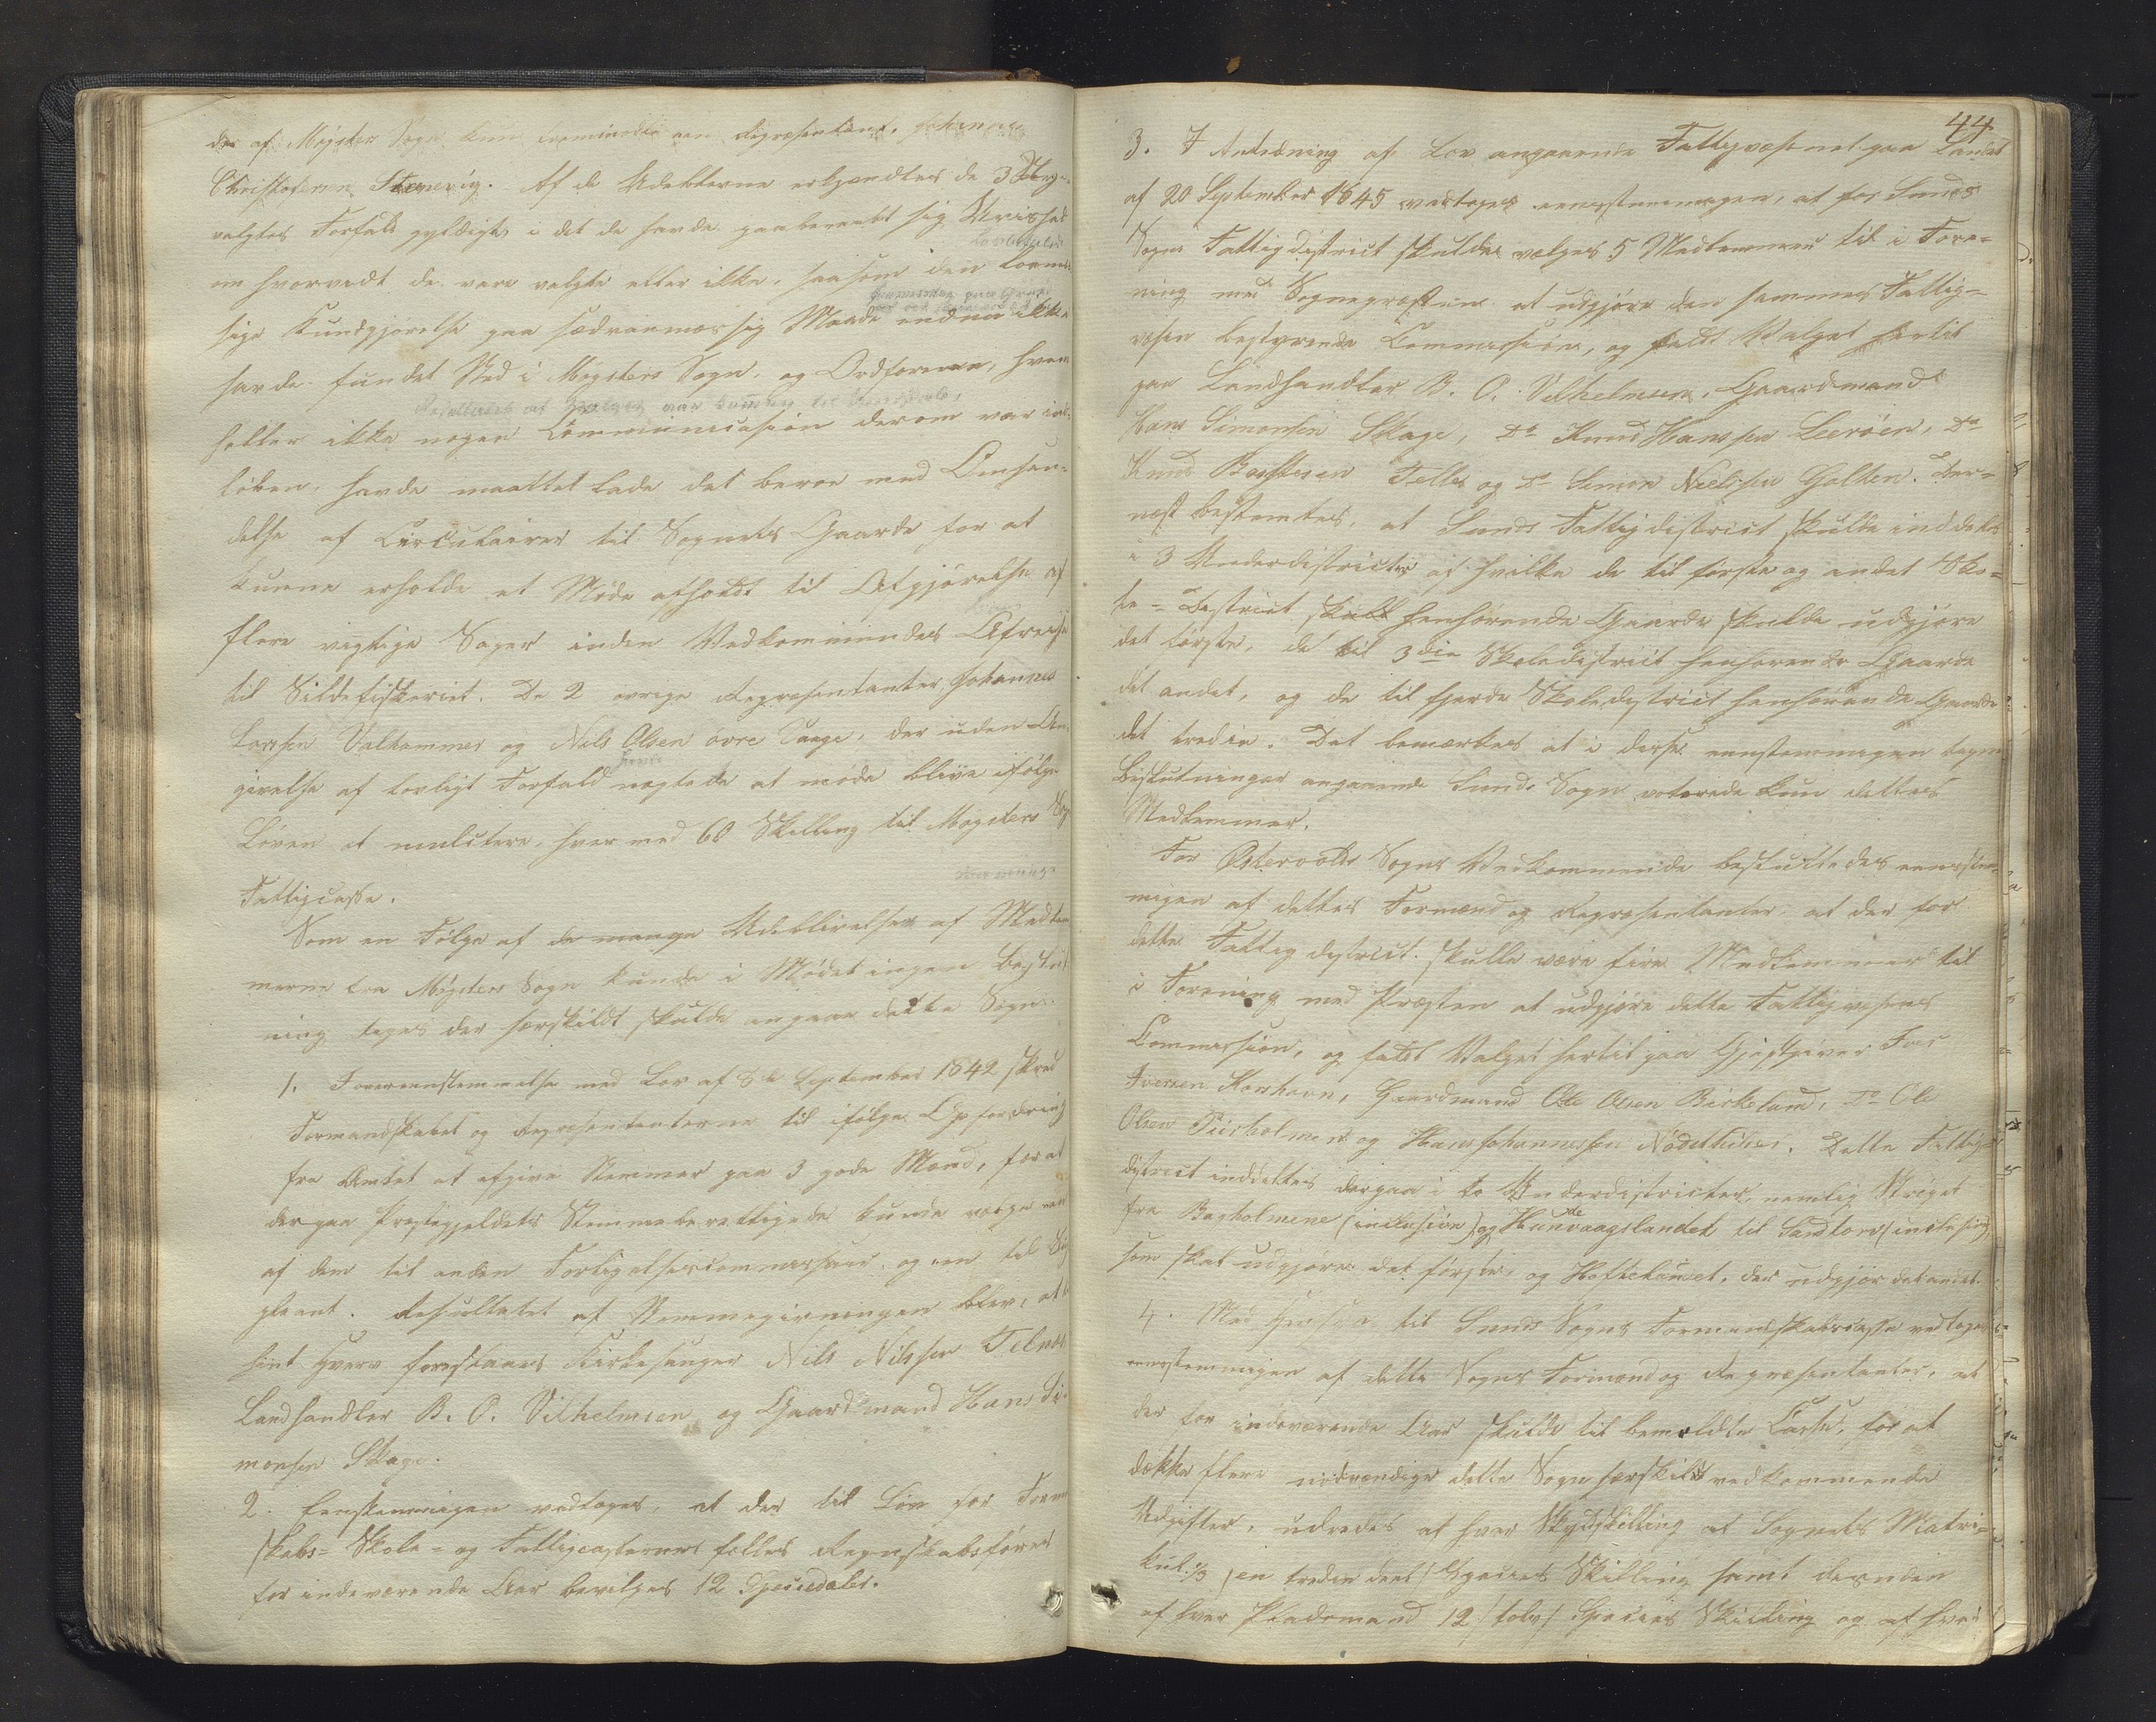 der af Møgster Sogn kun fremmødte een Repræsentant, Johannes
Christofersen Stenevig. Af de Udeblevne erkjendtes de 3 Ny-
valgtes Forfald gyldigt, i det de havde paaberaabt sig Uvished
om hvorvidt de vare valgte eller ikke, saasom den lovmæs-
sige Kundgjørelse paa sædvanmæssig Maade endnu ikke
havde fundet Sted i Møgsters Sogn, og Ordføreren, hvem
heller ikke nogen Communication derom var ind-
løben, havde maattet lade det beroe med Omsen-
delse af Circulairer til Sognets Gaarde for at
kunne erholde et Møde afholdt til Afgjørelse af
flere vigtige Sager inden Vedkommendes Afreise
til Sildefiskeriet. De 2 øvrige Repræsentanter, Johannes
Larsen Valhammer og Nils Olsen øvre Tange, der uden An-
givelse af lovligt Forfald negtede at møde blive ifølge
Loven at mulctere, hver med 60 Skilling til Møgsters Sogns
Fattigcasse.
Som en Følge af de mange Udeblivelser af Medlem-
merne fra Møgsters Sogn kunde i Mødet ingen Beslut-
ning tages der særskildt skulde angaae dette Sogn.
1. Foreensstemmelse med Lov af 8de September 1842 skred
Formandskabet og Repræsentanterne til ifølge Opfordring
fra Amtet at afgive Stemmer paa 3 gode Mænd, for at
derpaa Præstegjeldets Stemmeberettigede kunde vælge een
af dem til anden Forligelsescommissair og een til Sup-
pleant. Resultatet af Stemmegivningen blev, at
hint Hverv forestaaes Kirkesanger Nils Nilssen Telnes
Landhandler B. O. Vilhelmsen og Gaardmand Hans Si-
monsen Skage.
2. Eenstemmigen vedtoges, at der til Løn for Formand-
skabs- Skole- og Fattigcassernes fælles Regnskabsfører
for indeværende Aar bevilges 12 Speciedaler.
44
3. I Anledning af Lov angaaende Fattigvæsenet paa Landet
af 20 September 1845 vedtoges eensstemmigen, at for Sunds
Sogns Fattigdistrict skulde vælges 5 Medlemmer til i Fore-
ning med Sognepræsten at udgjøre den sammes Fattig-
væsen bestyrende Commission, og faldt Valget hertil
paa Landhandler B. O. Vilhelmsen, Gaardmand
Hans Simonsen Skage, Do Knud Hanssen Leerøen, Do
Knud Telle og Do Simon Nielssen Golten. Der-
næst bestemtes, at Sunds Fattigdistrict skulde inddeles
i 3 Underdistricter af hvilke de til første og andet Sko-
le-District henhørende Gaarde skulde udgjøre
det første, de til 3die Skoledistrict henhørende Gaarde
det andet, og de til fjerde Skoledistrict henhørende Gaarde
det tredie. Det bemærkes at i disse eenstemmigen tagne
Beslutninger angaaende Sunds Sogn voterede kun dettes
Medlemmer.
For Østervolds Sogns Vedkommende besluttedes eensstem-
migen af dettes Formænd og Repræsentanter, at der for
dette Fattigdistrict skulle være fire Medlemmer til
i Forening med Præsten at udgjøre dette Fattigvæsens
Commission, og faldt Valget hertil paa Gjæstgiver Iver
Iversen Korshavn, Gaardmand Ole Olsen Birkeland, Do Ole
Olsen og Hans Johannessen. Dette Fattig-
district inddeltes derpaa i to Underdistricter, nemlig Strøget
fra Bagholmene (inclusive) og Hunvaagslandet til Sandtorv (inclusive)
som skal udgjøre det første, og Hofteland, der udgjør det andet.
4. Med Hensyn til Sunds Sogns Formandskabscasse vedtoges
eensstemmigen af dette Sogns Formænd og Repræsentanter, at
der for indeværende Aar skulde til bemeldte Casse, for at
dække flere nødvendige dette Sogn særskildt vedkommende
Udgifter, udredes af hver Skyldskilling af Sognets Matri-
kul 1/3 (en tredie deel) Species Skilling samt desuden
af hver Pladsmand 12 (tolv) Species Skilling og af hver